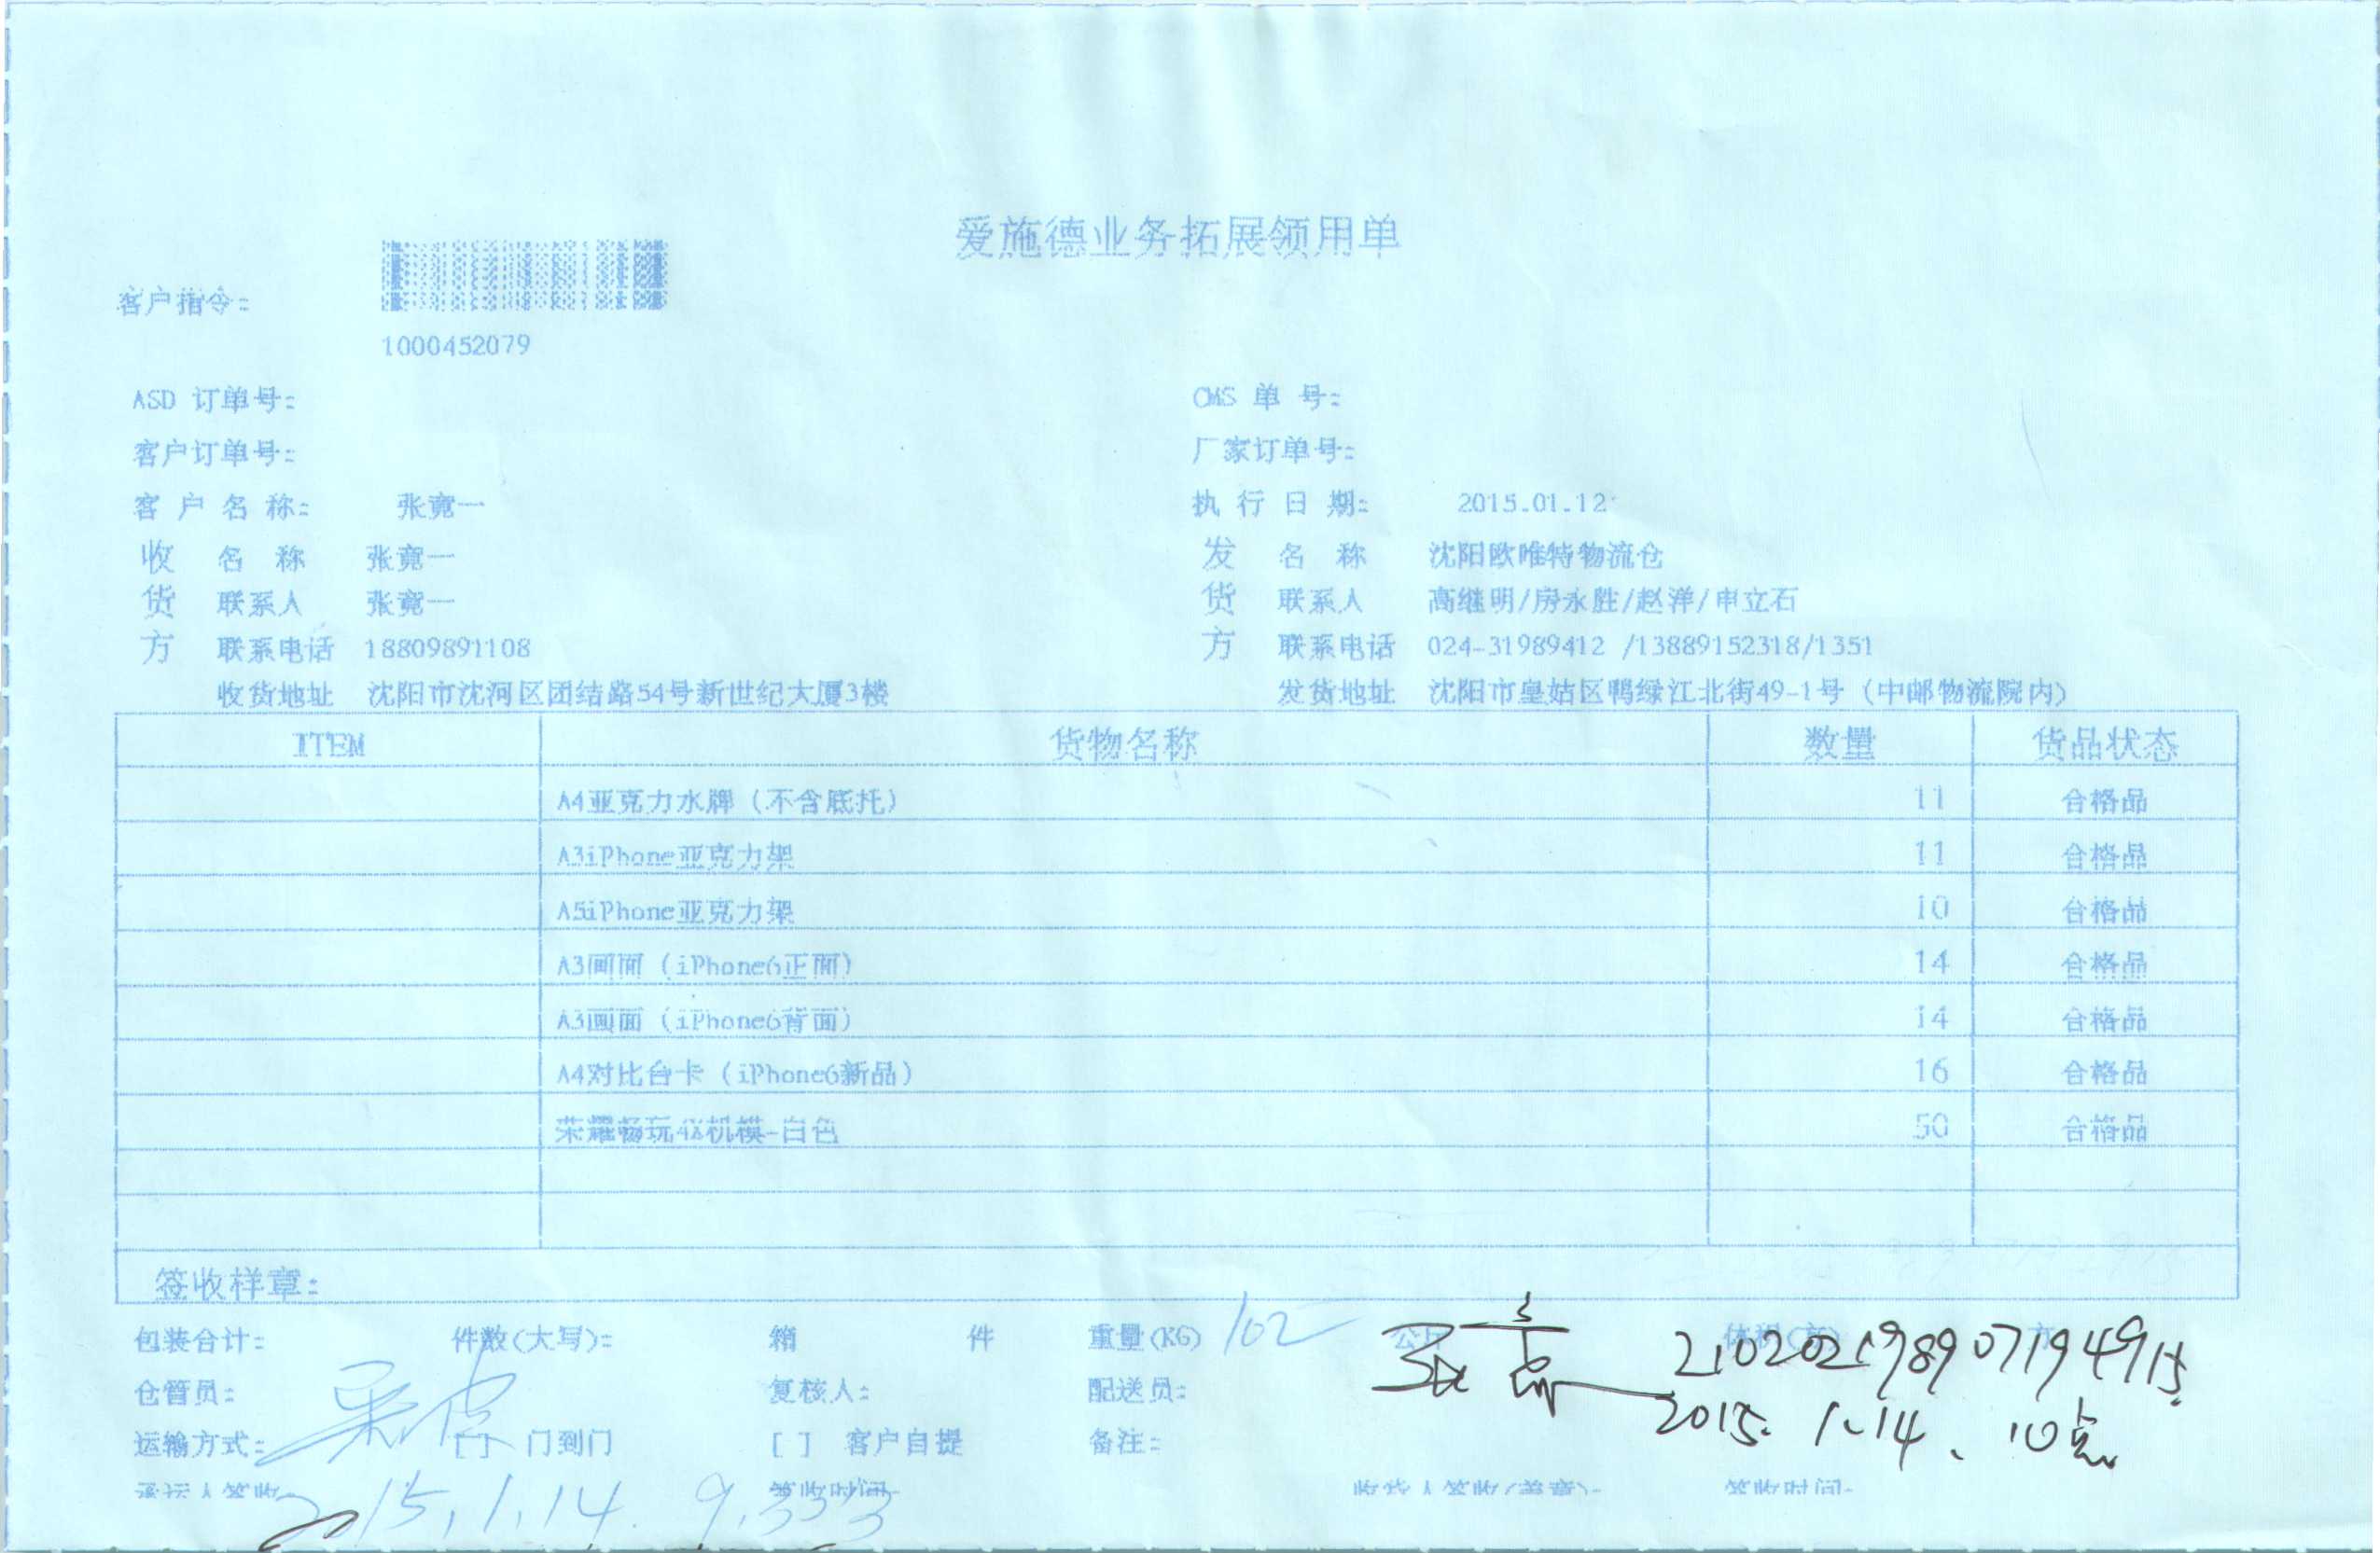 爱施德业务拓展领用单
客户指令:
1000452079
ASD 订单号: CMS 单 号:
客户订单号: 厂家订单号:
客 户 名 称: 张竟一 执 行 日 期: 2015.01.12
收 名 称 张竟一 发 名 称 沈阳欧唯特物流仓
货 联系人 张竟一 货 联系人 高继明/房永胜/赵洋/申立石
方 联系电话 18809891108 方 联系电话 024-31989412 /13889152318/1351
收货地址 沈阳市沈河区团结路54号新世纪大厦3楼 发货地址 沈阳市皇姑区鸭绿江北街49-1号 (中邮物流院内)
ITEM 货物名称 数量 货品状态
A4亚克力水牌 (不含底托) 11 合格品
A3iPhone亚克力架 11 合格品
A5iPhone亚克力架 10 合格品
A3画面 (iPhone6正面) 14 合格品
A3画面 (iPhone6背面) 14 合格品
A4对比台卡 (iPhone6新品) 16 合格品
荣耀畅玩4X机模-白色 50 合格品
签收样章:
包装合计: 件数(大写): 箱 件 重量(KG) 102 公斤 体积(方) 方
210202198907194915
仓管员: 复核人: 配送员:
2015. 1.14 、 10点
运输方式: [ ] 门到门 [ ] 客户自提 备注:
承运人签收: 签收时间: 收货人签收(盖章): 签收时间:
2015.1.14.